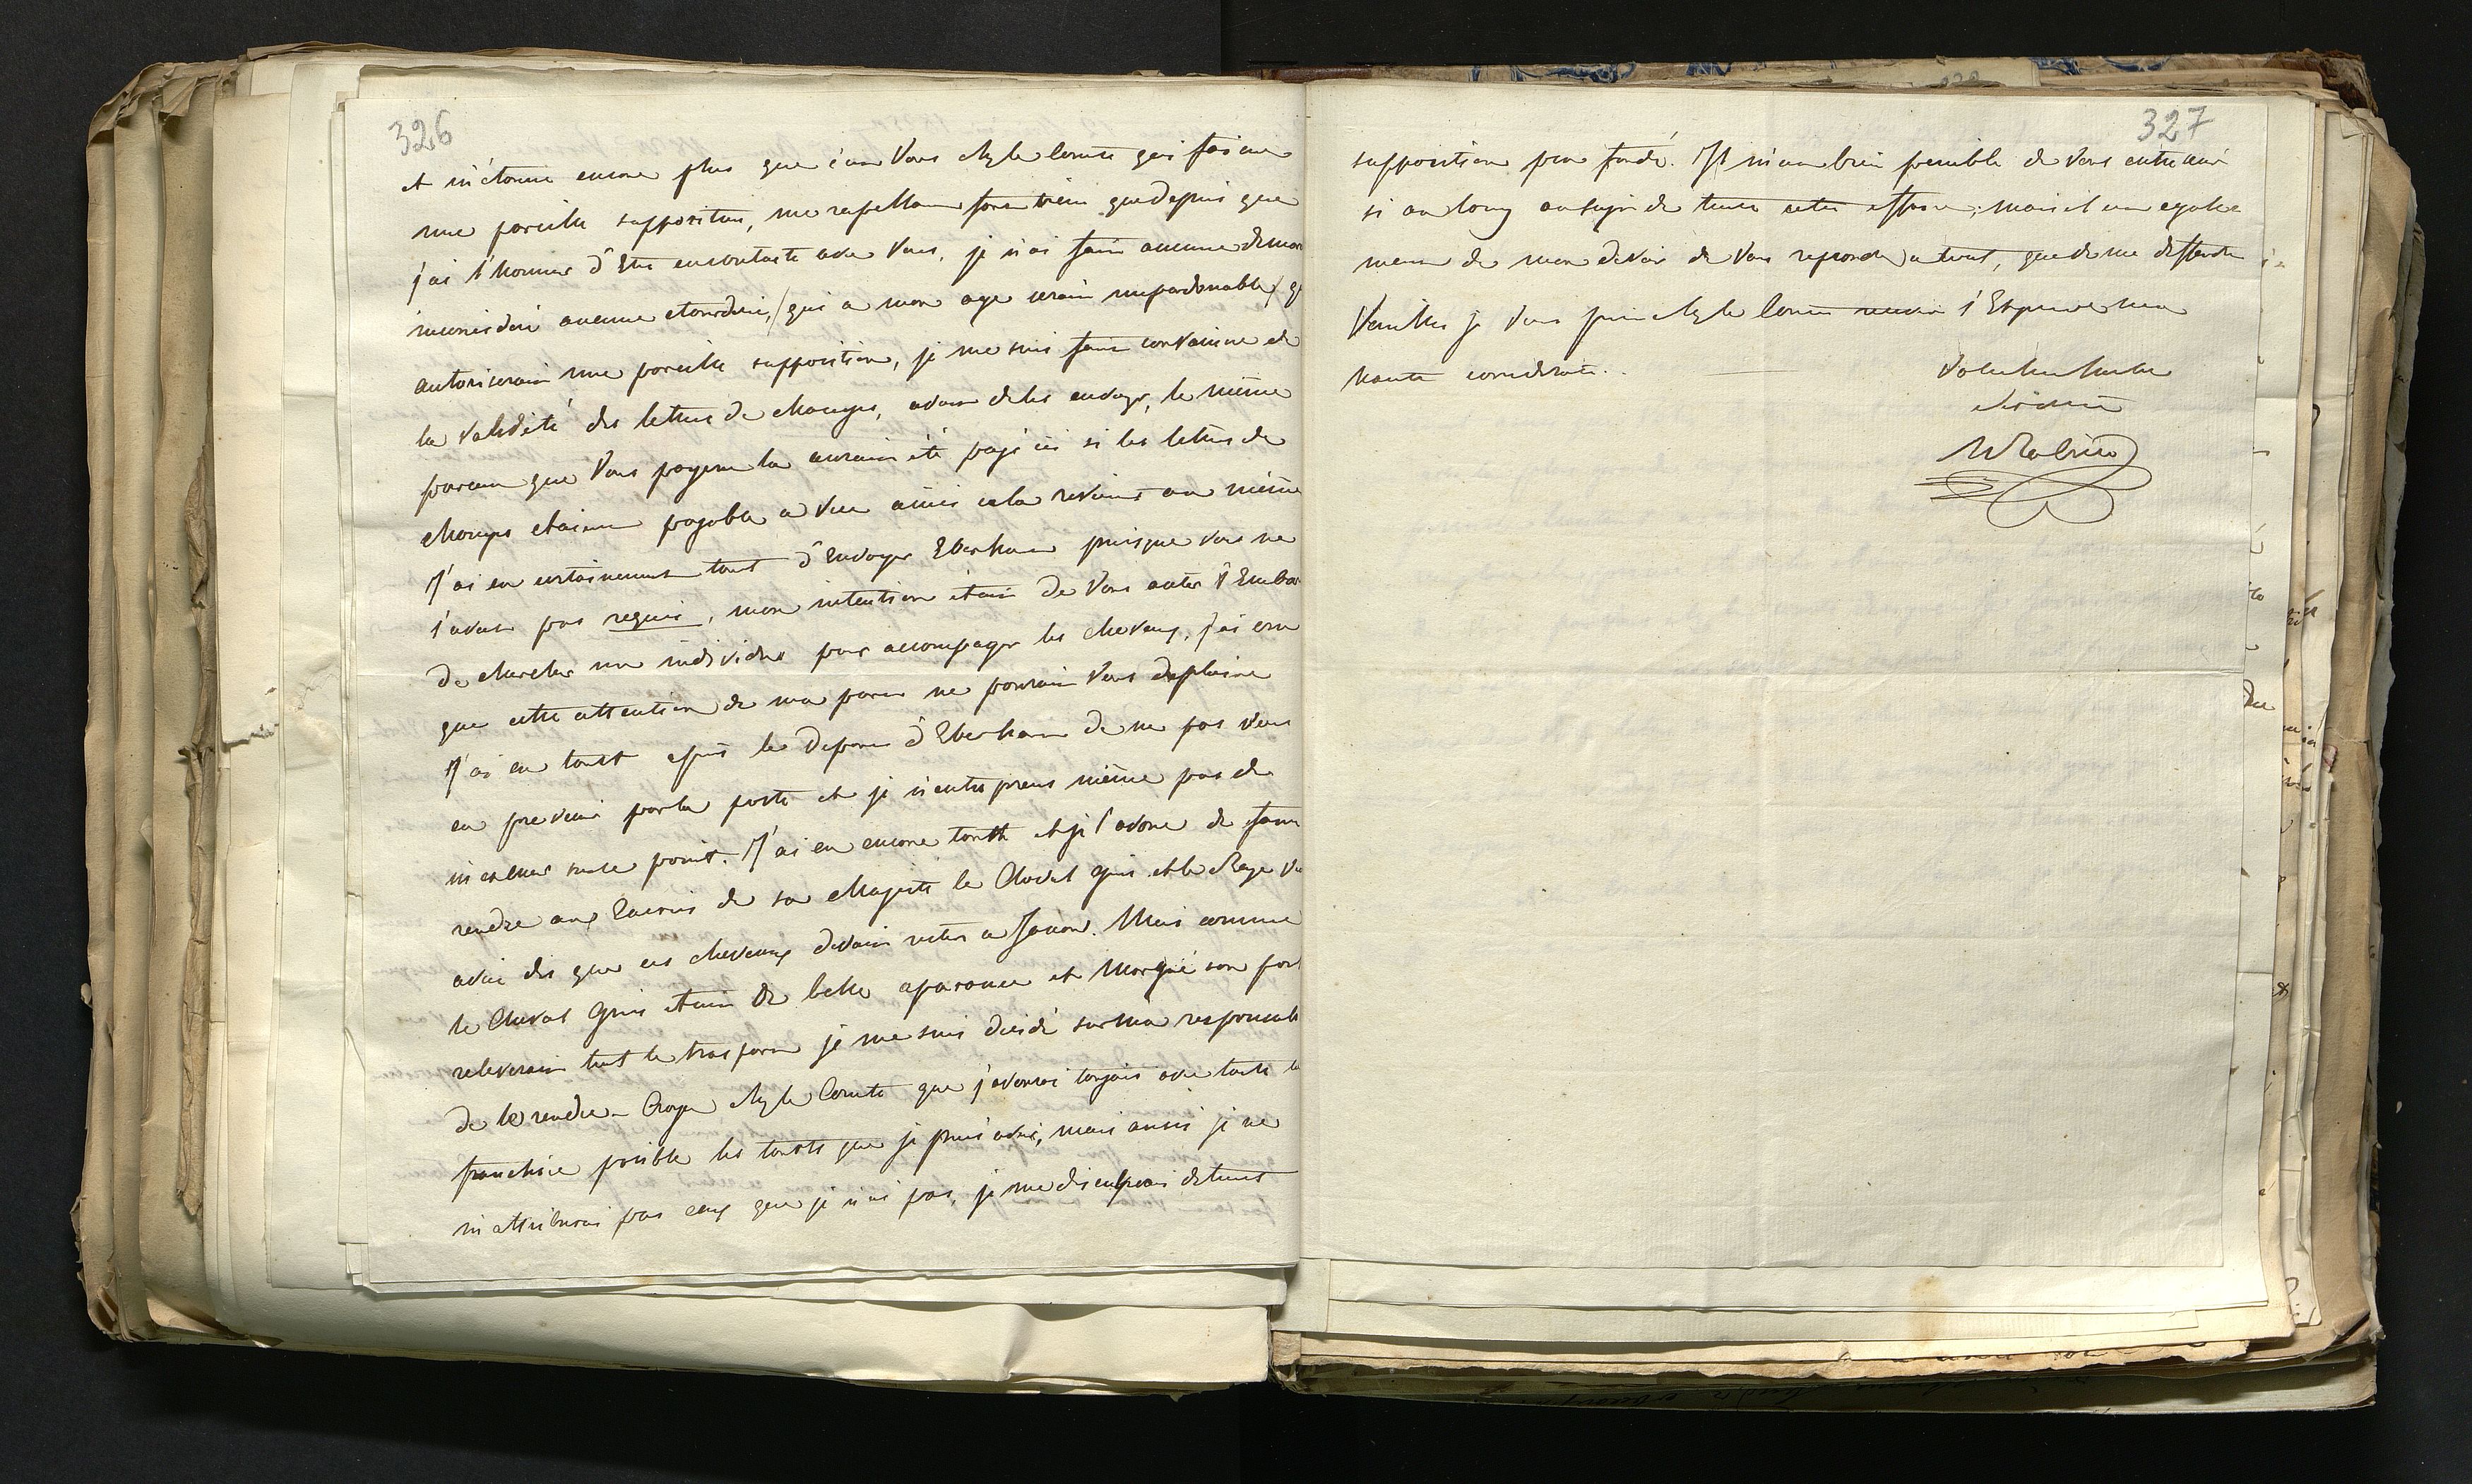 326
et m'étonne encore plus que c'est Vous Mr le Comte qui faisiez
une pareille supposition, me rapellant fort bien que depuis que
j'ai l'honneur d'Etre en contacte avec Vous, je n'ai fait aucune
aucune etourderie, (qui a mon age serait impardonable)
autoriserait une pareille supposition, je me suis fait convaincre de
la validité des lettres de changes, avant de les envoyer, le même
que Vous payerez la aurait été payé ici si les lettres de
changes etaient payable a vue ainsi cela revient au même
J'ai eu certainement tort d'Envoyer Eberhard puisque vous ne
l'avez pas requis, mon intention etait de Vous oter l'Embar
de chercher un individu pour accompagner les chevaux, j'ai cru
que cette attention de ma part ne pourait Vous deplaire
J'ai eu tort après le depart d'Eberhard de ne pas Vous
en prevenir par la poste et je n'entreprens même pas de
m'excuser sur ce point. J'ai eu encore tort et je l'avoue de faire
rendre aux Ecuries de sa Majesté le Cheval gris et le
avoir dis que ces chevaux devait rester a Janow. Mais comme
le Cheval gris etait de belle aparance et
releverait tout le transport je me suis decidé sur ma responsab
de le rendre - Croyez Mr le Comte que j'avouerai toujours avec toute la
franchise posible les torts que je puis avoir, mais aussi je ne
m'attribuerai pas ceux que je n'ai pas, je me disculperai de toute
327
supposition peu fondé. Il m'est bien penible de Vous entretenir
si au long au sujet de toute cette affaire, mais il est egale
ment de mon devoir de Vous repondre a tout, que de me deffendre
Veuillez je Vous prie Mr le Comte l'Expression de ma
haute consideration.